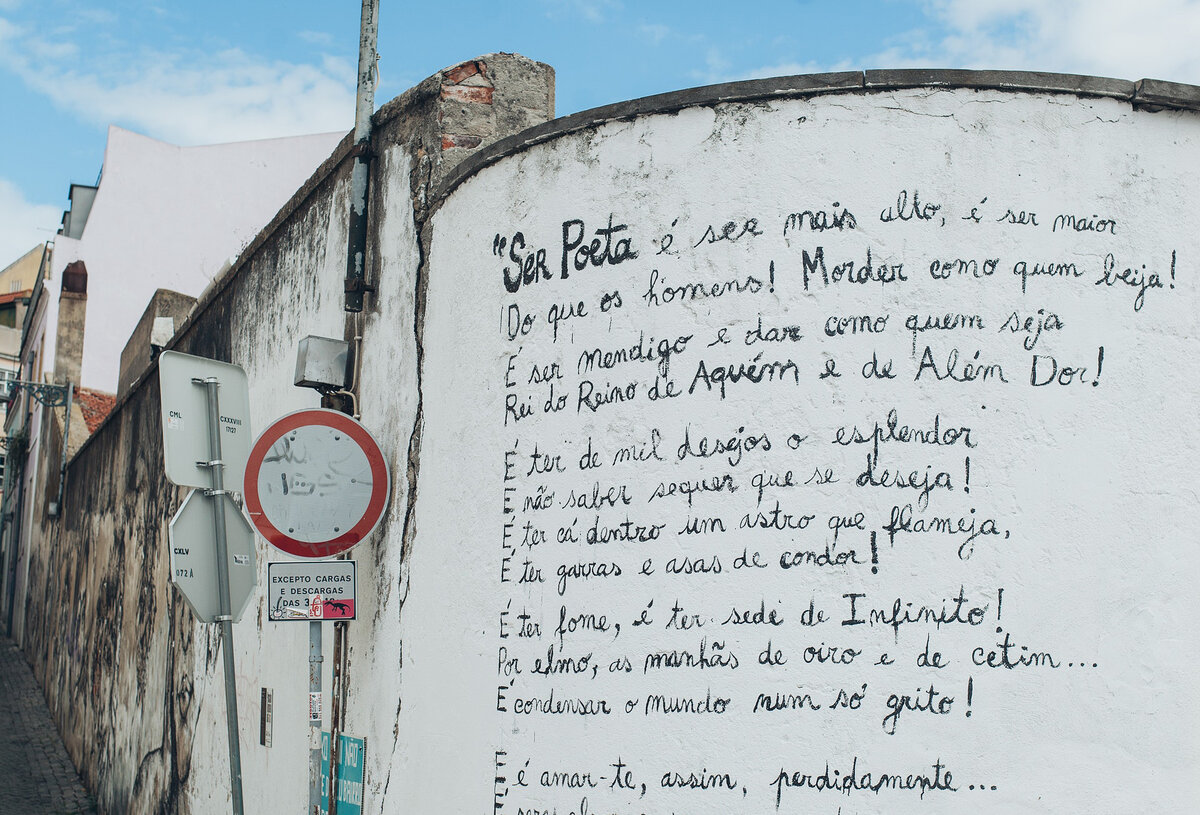 "Ser Poeta é ser mais alto, é ser maior
Do que os homens! Morder como quem beija!
É ser mendigo e dar como quem seja
Rei do Reino de Aquém e de Além Dor!
É ter de mil desejos o esplendor
E não saber sequer que se deseja!
É ter cá dentro um astro que flameja,
É ter garras e asas de condor!
É ter fome, é ter sede de Infinito!
Por elmo, as manhãs de oiro e de cetim...
É condensar o mundo num só grito!
E é amar-te, assim, perdidamente...
CML
CXXXVIII
CXLV
072 A
EXCEPTO CARGAS
E DESCARGAS
DAS
NÃO